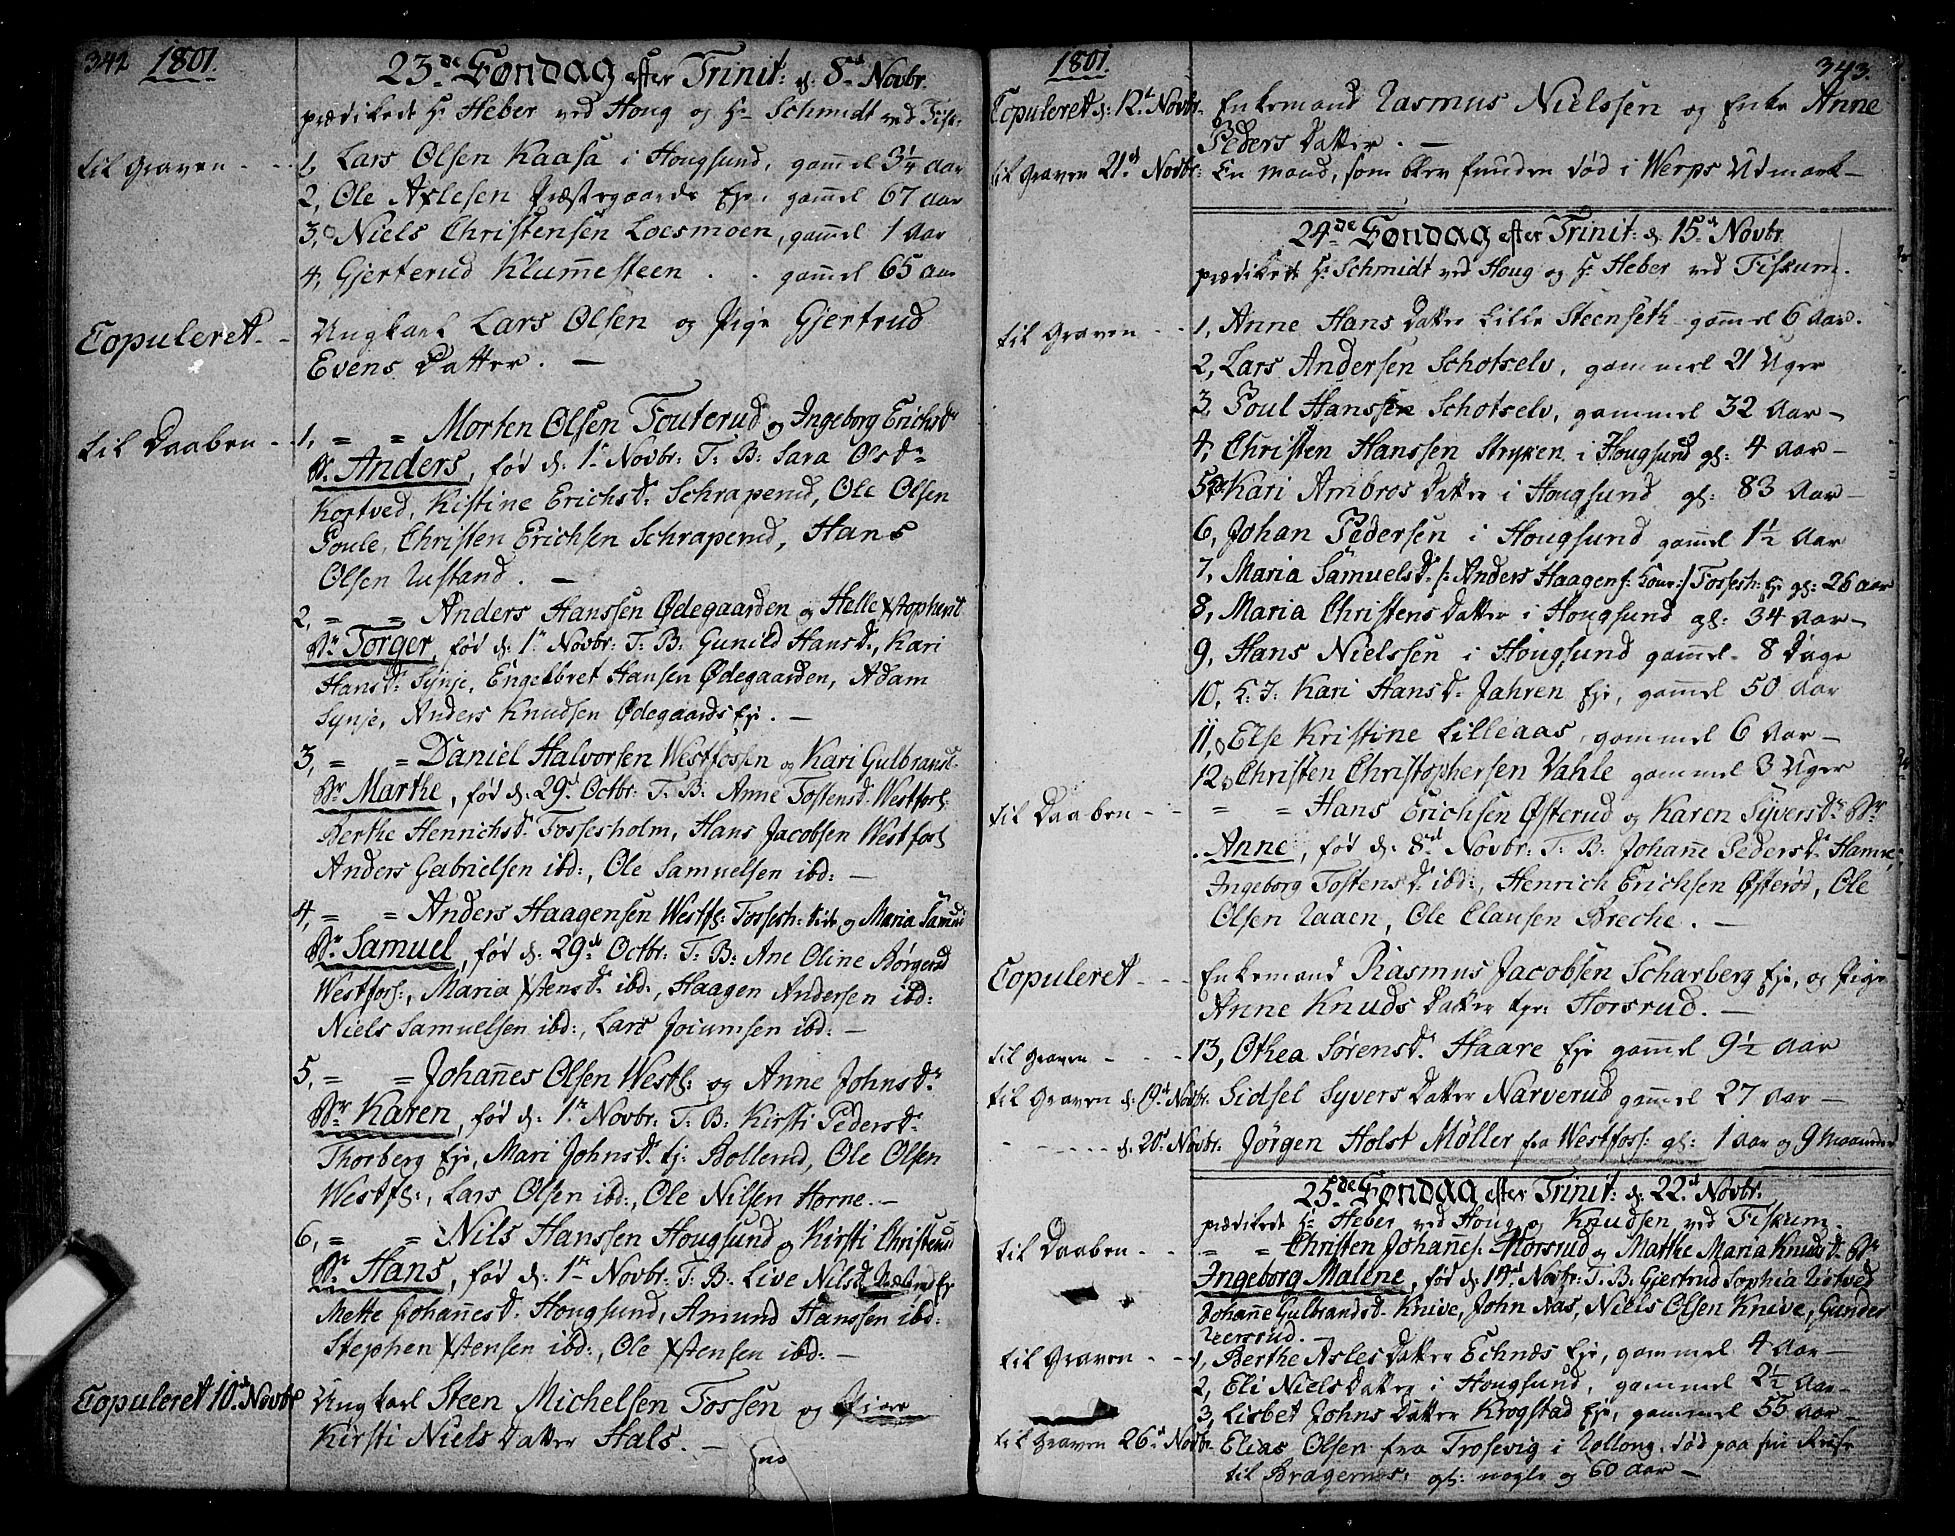 342 1801.
23de Søndag efter Trinit: d. 8de Novbr.
prædikede Hr Heber ved Houg og Hr Schmidt ved Fisk:
til Graven - - 1, Lars Olsen Kaasa i Hougsund, gammel 3 1/4 aar
2, Ole Axlesen Præstegaards Eje, gammel 67 aar
3, Niels Christensen Loesmoen, gammel 1 Aar
4, Gjerterud Klumesteen . . gammel 65 aar
Copuleret - - Ungkarl Lars Olsen og Pige Gjertrud
Evens Datter. —
til Daaben - - 1, = = Morten Olsen Fouterud og Ingeborg Erichsdr
Br. Anders, fød d. 1te Novbr: T. B: Sara Olsdr
Kortved, Kistine Erichsd. Schraperud, Ole Olsen
Poule, Christen Erichsen Schraperud, Hans
Olsen Rustand. —
2, = = Anders Hanssen Ødegaarden og Helle Xstophersd
Br. Torger, fød d. 1te Novbr: T. B: Gunild Hansd., Kari
Hansd. Synje, Engelbret Hansen Ødegaarden, Adam
Synje, Anders Knudsen Ødegaards Eje. —
3, = = Daniel Halvorsen Westfossen og Kari Gulbransd.
Br. Marthe, fød d. 29d Octbr: T. B: Anne Tostensd. Westfos:
Berthe Henrichsd. Fossesholm, Hans Jacobsen Westfos:
Anders Gabrielsen ibd:, Ole Samuelsen ibd: —
4, = = Anders Haagensen Westfs: Fossesh: Eie og Maria Samuels
Br. Samuel, fød d. 29de Octbr: T. B: Ane Oline Børgersd
Westfos:, Maria Xstensd. ibd:, Haagen Andersen ibd:
Niels Samuelsen ibd:, Lars Joiumsen ibd: —
5, = = Johannes Olsen Westf: og Anne Johnsdr
Br. Karen, fød d. 1te Novbr: T. B: Kirsti Pedersdr
Thorberg Eje, Mari Johnsd. Ej: Bollerud, Ole Olsen
Westfs:, Lars Olsen ibd:, Ole Nilsen Horne. —
6, = = Nils Hanssen Hougsund og Kirsti Christensd
Br. Hans, fød d. 1te Novbr: T. B: Live Nilsd.
Mette Johannesd. Hougsund, Amund Hanssen ibd:
Stephen Xstensen ibd:, Ole Xstensen ibd: —
Copuleret 10de Novbr Ungkarl Steen Michelsen Fossen og Pige
Kirsti Niels Datter Hals. —
1801. 343.
Copuleret d. 12te Novbr. Enkemand Rasmus Nielssen og Enke Anne
Peders Datter. —
til Graven 21de Novbr: En mand, som blev funden død i Werps Udmark —
24de Søndag efter Trinit: d. 15de Novbr
prædikede Hr Schmidt ved Houg og Hr Heber ved Fiskum.
til Graven - - 1, Anne Hans Datter Lille Steenseth gammel 6 Aar.
2, Lars Andersen Schotselv, gammel 21 Uger
3, Poul Hanssen Schotselv, gammel 32 Aar —
4, Christen Hanssen Stryken i Hougsund gl: 4 aar —
5, Kari Ambros Datter i Hougsund gl: 83 Aar —
6, Johan Pedersen i Hougsund gammel 1 1/2 Aar
7, Maria Samuelsd. /: Anders Haagens: Kone :/ Fossesh: Eje gl: 26 aar
8, Maria Christens Datter i Hougsund gl: 34 Aar —
9, Hans Nielssen i Hougsund gammel 8 Dage
10, Kari Hansd. Jahren Eje, gammel 50 Aar
11, Else Kristine Lilleaas, gammel 6 Aar —
12, Christen Christophersen Dahle gammel 3 Uger
til Daaben - - = = Hans Erichsen Østerud og Karen Syversdr Br
Anne, fød d. 8de Novbr: T. B: Johanne Pedersdr Hamre,
Ingeborg Tostensd. ibd:, Henrich Erichsen Østerød, Ole
Olsen Raaen, Ole Clausen Breche. —
Copuleret - - Enkemand Rasmus Jacobsen Scharberg Eje, og Pige
Anne Knuds Datter Horsrud. —
til Graven - - - 13, Othea Sørensd. Haare Eje gammel 9 1/2 Aar
til Graven d. 19de Novbr. Sidsel Syvers Datter Narverud gammel 27 Aar —
- - - - - d. 20de Novbr. Jørgen Holst Møller fra Westfos: gl: 1 aar og 9 maaneder
25de Søndag efter Trinit: d. 22de Novbr:
prædikede Hr Heber ved Houg og Knudsen ved Fiskum.
til Daaben - - = = Christen Johannes: Horsrud og Marthe Maria Knudsdr Br
Ingeborg Malene, fød d. 14de Novbr: T. B: Gjertrud Sophia Ristved
Johanne Gulbrandsd. Knive, John Aas, Niels Olsen Knive, Gunder
Reersrud. —
til Graven - - 1, Berthe Asles Datter Echnæs Eje, gammel 4 Aar —
2, Eli Niels Datter i Hougsund, gammel 2 1/2 Aar —
3, Lisbet Johns Datter Krogstad Eje, gammel 55 Aar —
til Graven 26de Novbr. Elias Olsen fra Trosevig i Rollong. død paa sin Reise
til Bragernæs, gl: nogle og 60 aar —